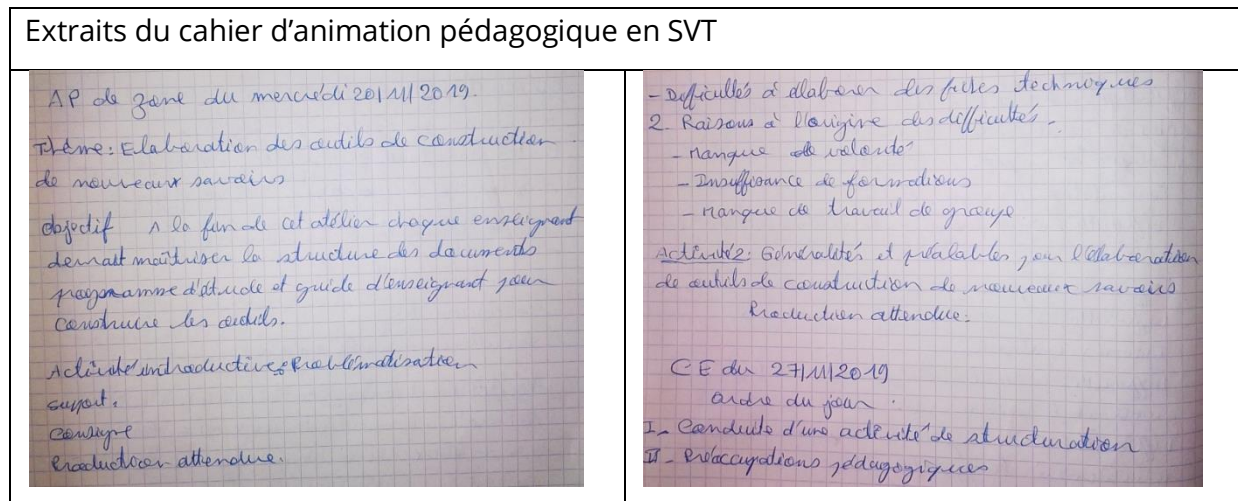 Extraits du cahier d'animation pédagogique en SVT
AP de zone du mercredi 20/11/2019.
Thème: Elaboration des outils de construction
de nouveaux savoirs
Objectif A la fin de cet atélier chaque enseignant
devrait maîtriser la structure des documents
programme d'étude et guide d'enseignant pour
construire les outils.
Activité introductive: Problématisation
support.
Consigne
Production attendue.
- Difficultés à élaborer des fiches techniques
2. Raisons à l'origine des difficultés.
- Manque de volonté
- Insuffisance de formations
- Manque de travail de groupe
Activité 2: Généralités et préalables pour l'élaboration
de outils de construction de nouveaux savoirs
Production attendue.
CE du 27/11/2019
ordre du jour.
I_ Conduite d'une activité de structuration
II_ Préoccupations pédagogiques